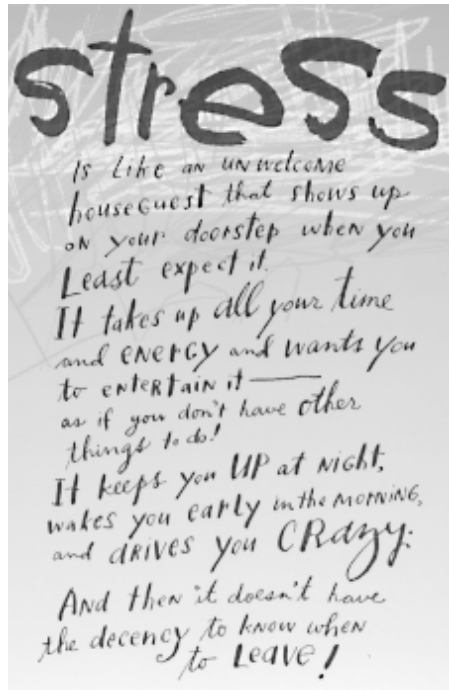 stress
Is Like an unwelcome
houseguest that shows up
on your doorstep when you
Least expect it.
It takes up all your time
and ENERGY and wants you
to entertain it —
as if you don't have other
things to do!
It keeps you UP at Night,
wakes you early in the MORNING,
and DRIVES you CRazy.
And then it doesn't have
the decency to know when
to Leave!